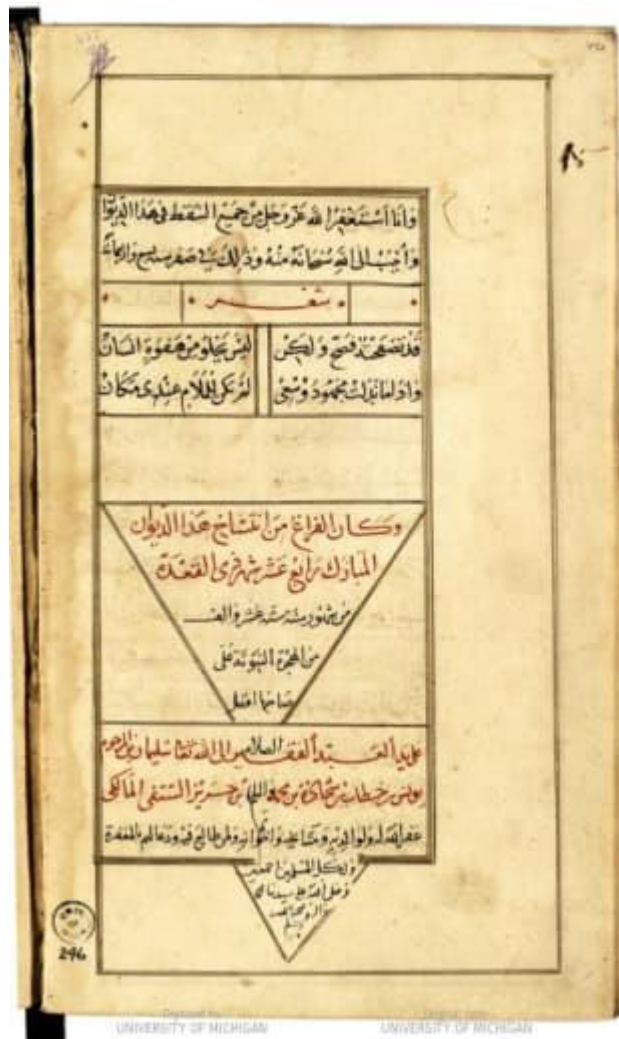 وأنا أستغفر الله عز وجل من جميع السقط في هذا الديوان
وأتيب الى الله سبحانه منه وذلك في صفر سنة سبع وأربعمائة
شعر
قد تصفحت فصح ولكن ليس يخلو من هفوة انسان
واذا ما بذلت مجهود وسعي لم تكن للملام عندي مكان
وكان الفراغ من انتساخ هذا الديوان
المبارك رابع عشر شهر ذي القعدة
من شهور سنة ستة عشر والف
من الهجرة النبوية على
صاحبها افضل
السلام
على يد العبد الفقير الى الله تعالى سليمان بن المرحوم
يونس بن المالكي
غفر الله له ولوالديه ومشايخه واخوانه ولمن طالع فيه ودعا لهم بالمغفرة
ولكل المسلمين اجمعين
وصلى الله على سيدنا محمد
وآله وصحبه
وسلم
246
UNIVERSITY OF MICHIGAN
UNIVERSITY OF MICHIGAN